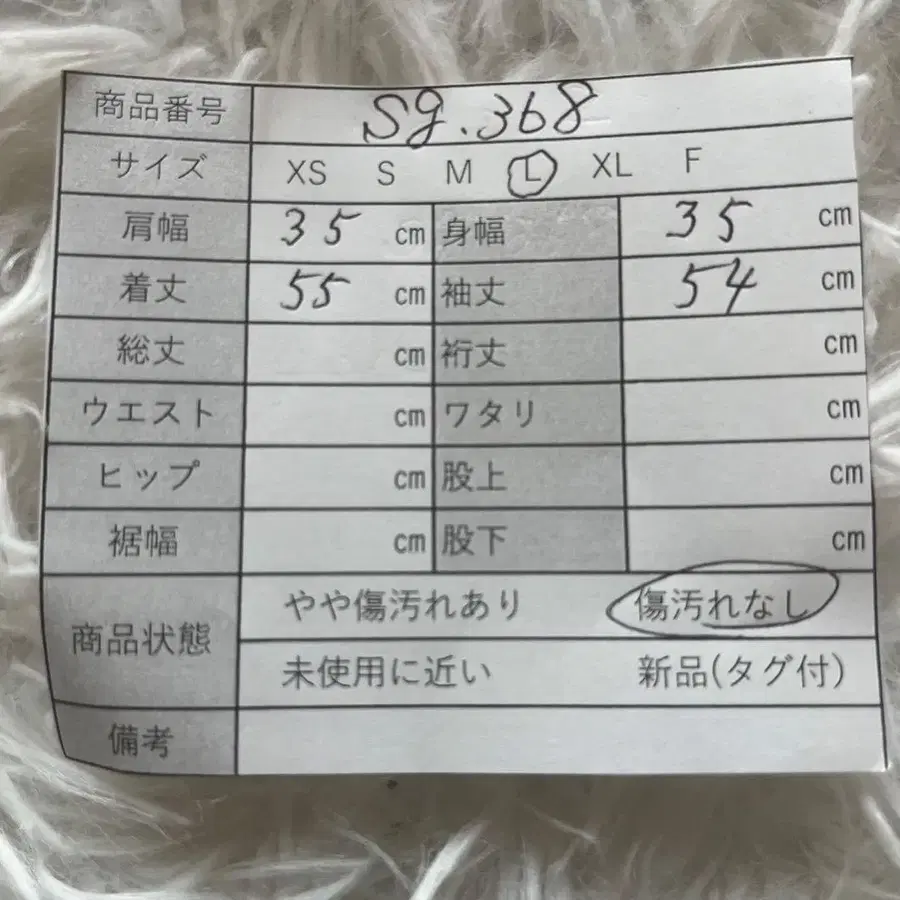 商品番号 Sg.368
サイズ XS S M L XL F
肩幅 35 cm 身幅 35 cm
着丈 55 cm 袖丈 54 cm
総丈 cm 裄丈 cm
ウエスト cm ワタリ cm
ヒップ cm 股上 cm
裾幅 cm 股下 cm
商品状態 やや傷汚れあり 傷汚れなし
未使用に近い 新品(タグ付)
備考